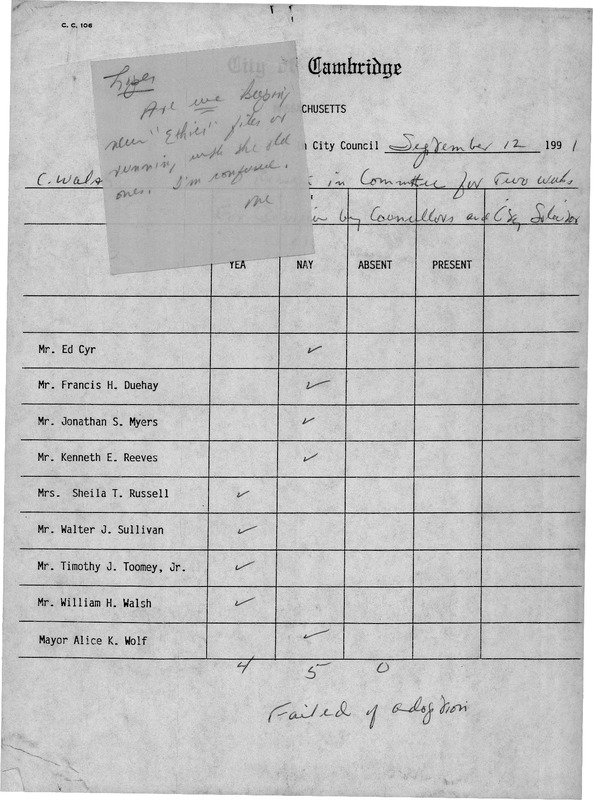 C. C. 106
City of Cambridge
CHUSETTS
Are we buying
new "Ethics" files or
running with the old
ones. I'm confused.
me
City Council September 12 1991
C. Wals in Committee for Two weeks
by Councillors and City Solicitor
YEA NAY ABSENT PRESENT
Mr. Ed Cyr ✓
Mr. Francis H. Duehay ✓
Mr. Jonathan S. Myers ✓
Mr. Kenneth E. Reeves ✓
Mrs. Sheila T. Russell ✓
Mr. Walter J. Sullivan ✓
Mr. Timothy J. Toomey, Jr. ✓
Mr. William H. Walsh ✓
Mayor Alice K. Wolf ✓
4 5 0
Failed of adoption